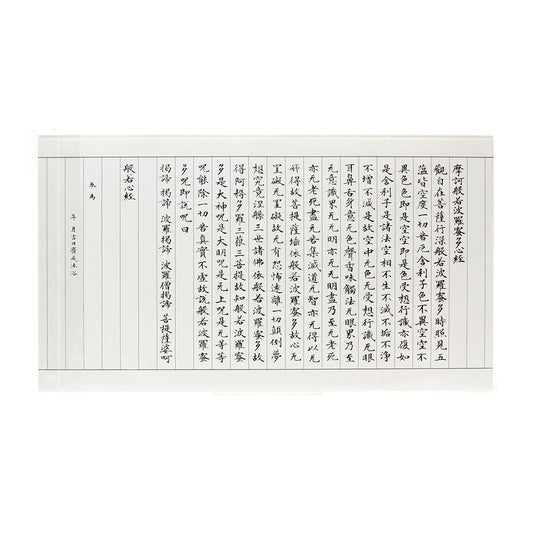 摩訶般若波羅蜜多心経
觀自在菩薩行深般若波羅蜜多時照見五
蘊皆空度一切苦厄舍利子色不異空空不
異色色即是空空即是色受想行識亦復如
是舍利子是諸法空相不生不滅不垢不浄
不増不減是故空中无色无受想行識无眼
耳鼻舌身意无色聲香味觸法无眼界乃至
无意識界无无明亦无无明盡乃至无老死
亦无老死盡无苦集滅道无智亦无得以无
所得故菩提薩埵依般若波羅蜜多故心无
罣礙无罣礙故无有恐怖遠離一切顛倒夢
想究竟涅槃三世諸佛依般若波羅蜜多故
得阿耨多羅三藐三菩提故知般若波羅蜜
多是大神呪是大明呪是无上呪是无等等
呪能除一切苦真實不虚故説般若波羅蜜
多呪即説呪曰
揭諦 揭諦 波羅揭諦 波羅僧揭諦 菩提薩婆呵
般若心経
奉為
年 月吉日齋戒沐浴